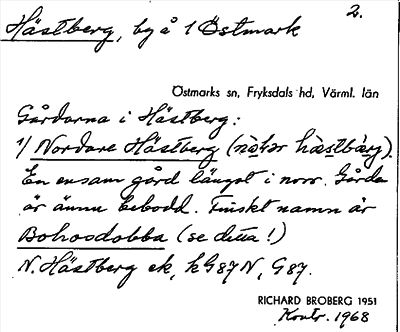 2.
Hästberg, by å 1 Östmark
Östmarks sn, Fryksdals hd, Värml. län
Gårdarna i Hästberg:
1/ Nordare Hästberg (
En ensam gård längst i norr. Gården
är ännu bebodd. Finskt namn är
Bohosdobba (se detta!)
N. Hästberg ek, kG87N, G87.
RICHARD BROBERG 1951
Kontr. 1968